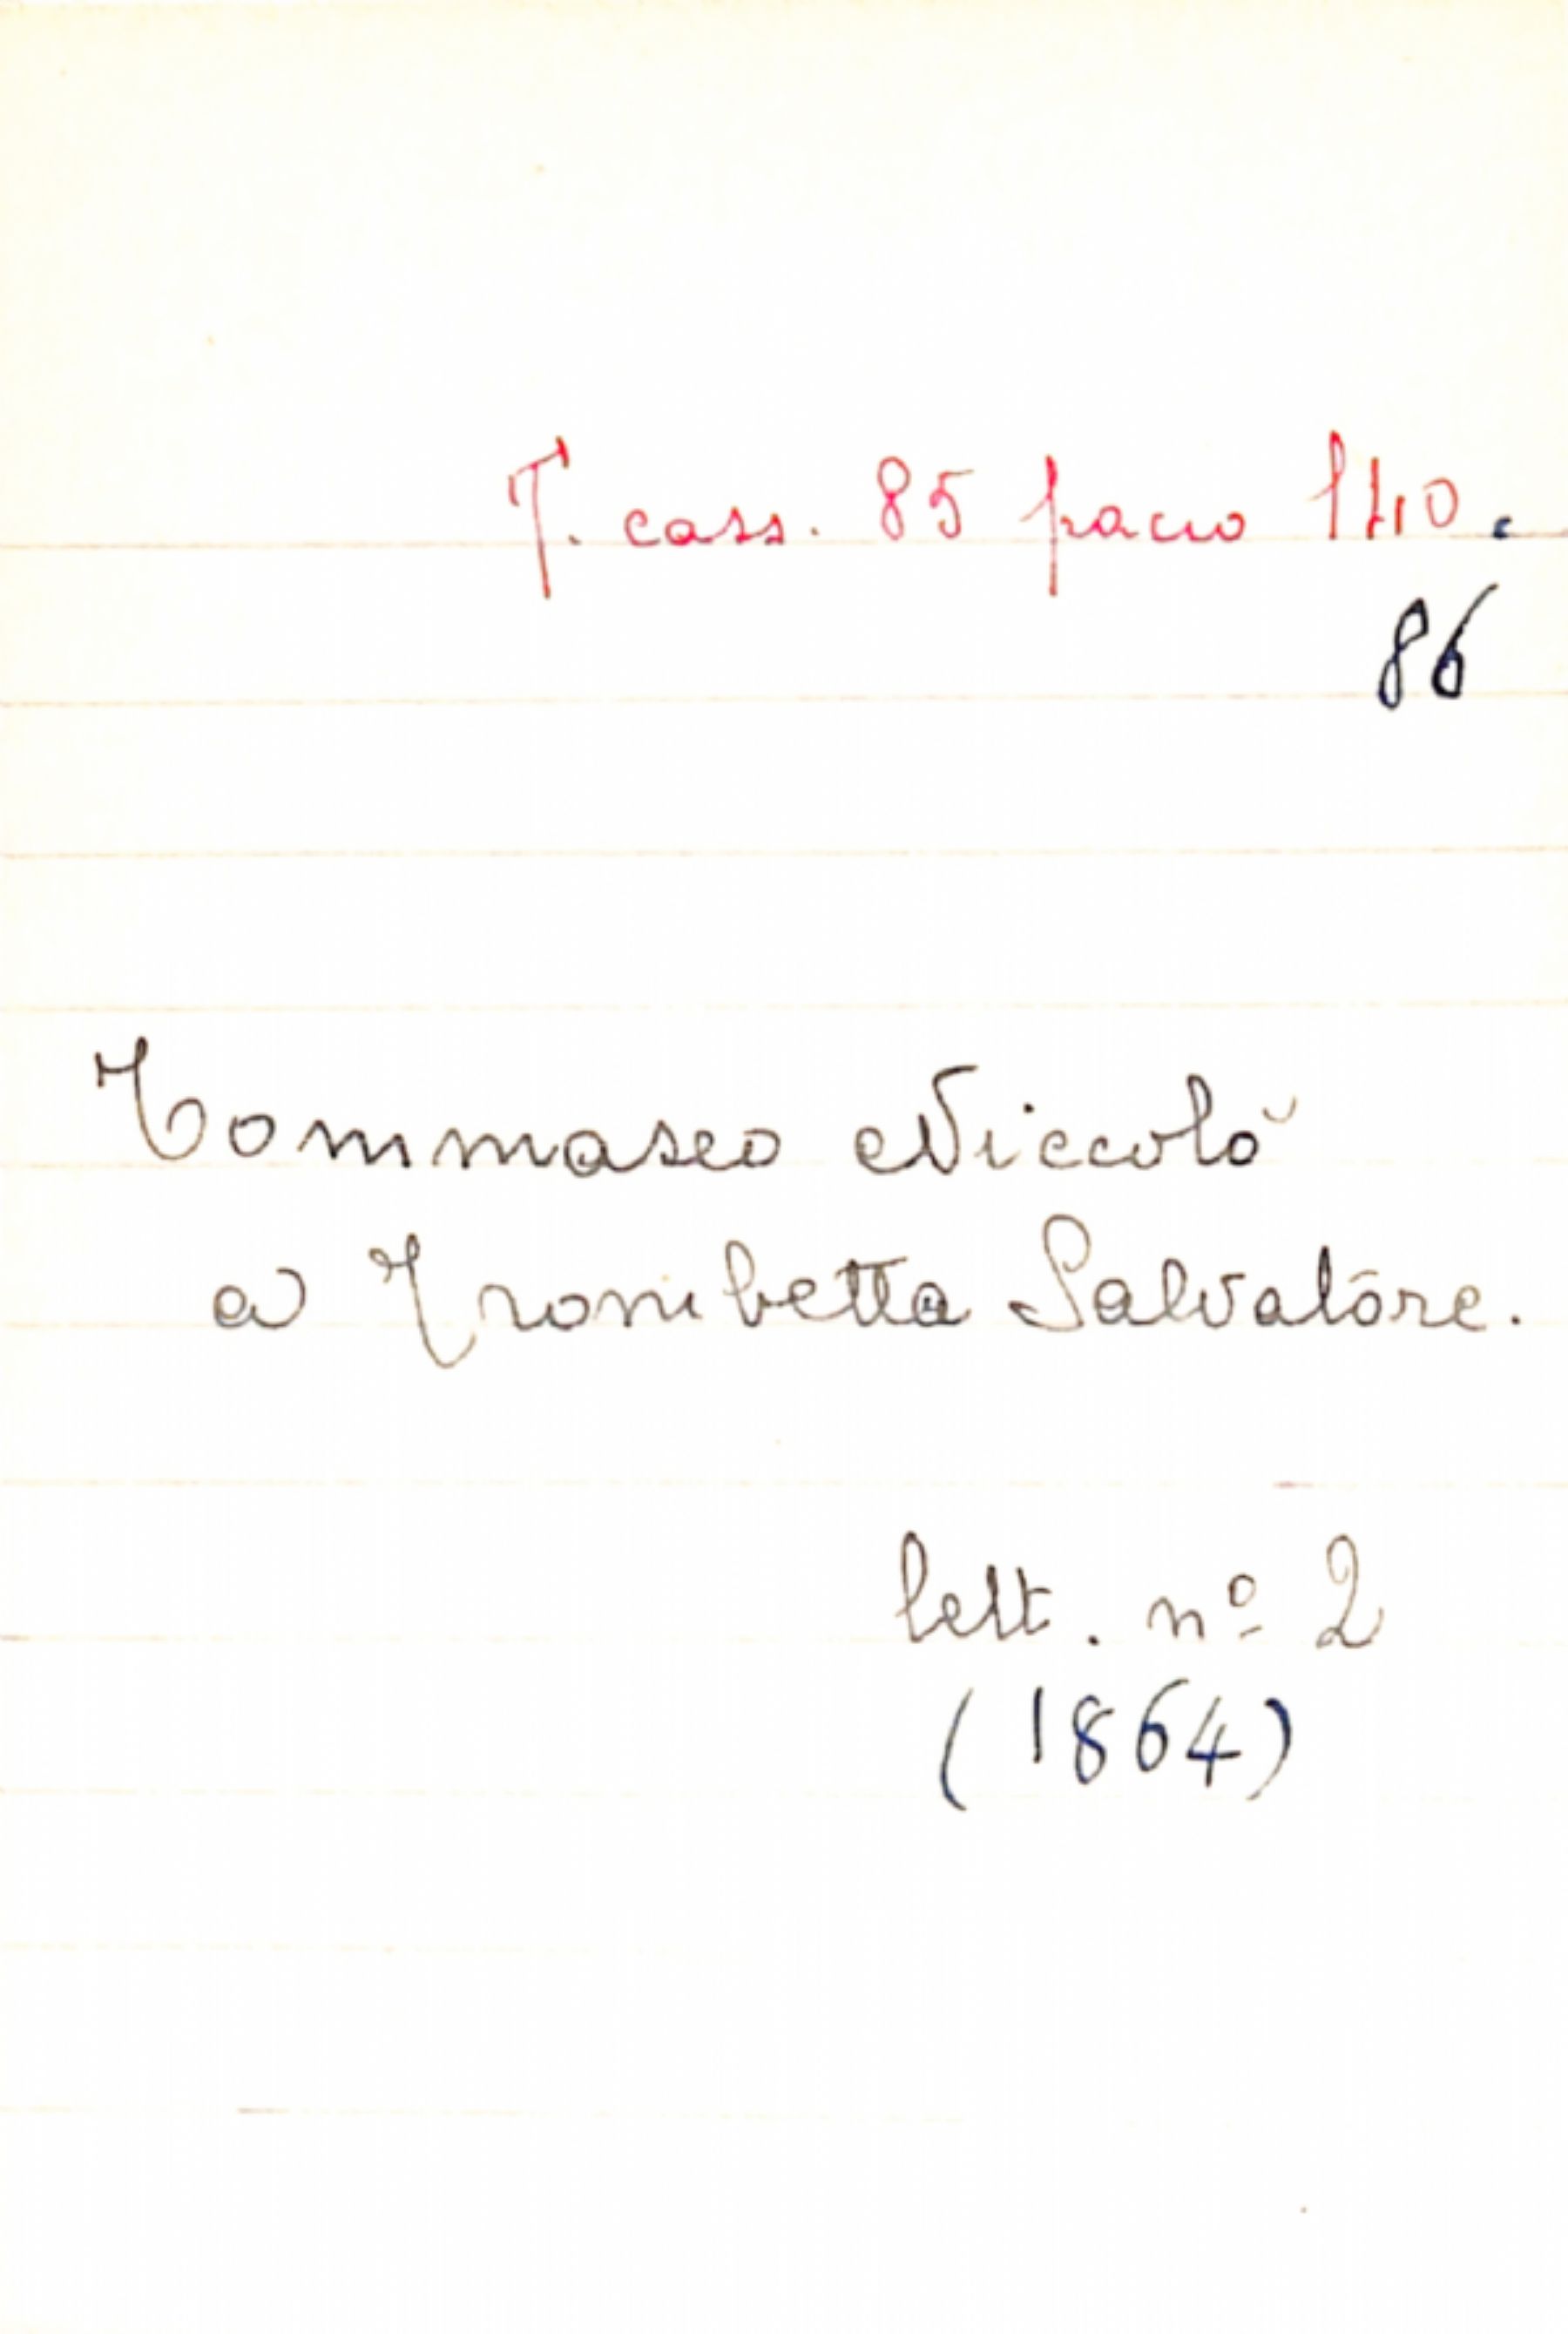 T. cass. 85 pacco 140.
86
Tommaseo Niccolò
a Trombetta Salvatore.
lett. nº 2
(1864)